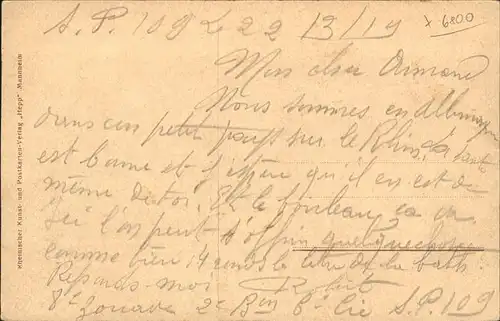 S. P. 109 Le 22 /3/19
x 6800
Mon cher Armand
Nous sommes en Allemagne
dans un petit pays sur le Rhin, la santé
est bonne et j'espère qu'il en est de
même de toi. Et le bouleau, ça va
Ici l'on peut s'offrir quelque chose
comme bière 4 ronds le litre
Reponds-moi Robert
8e Zouave 2e Bon 6e Cie S.P. 109
Rheinischer Kunst- und Postkarten-Verlag „Hepp" Mannheim